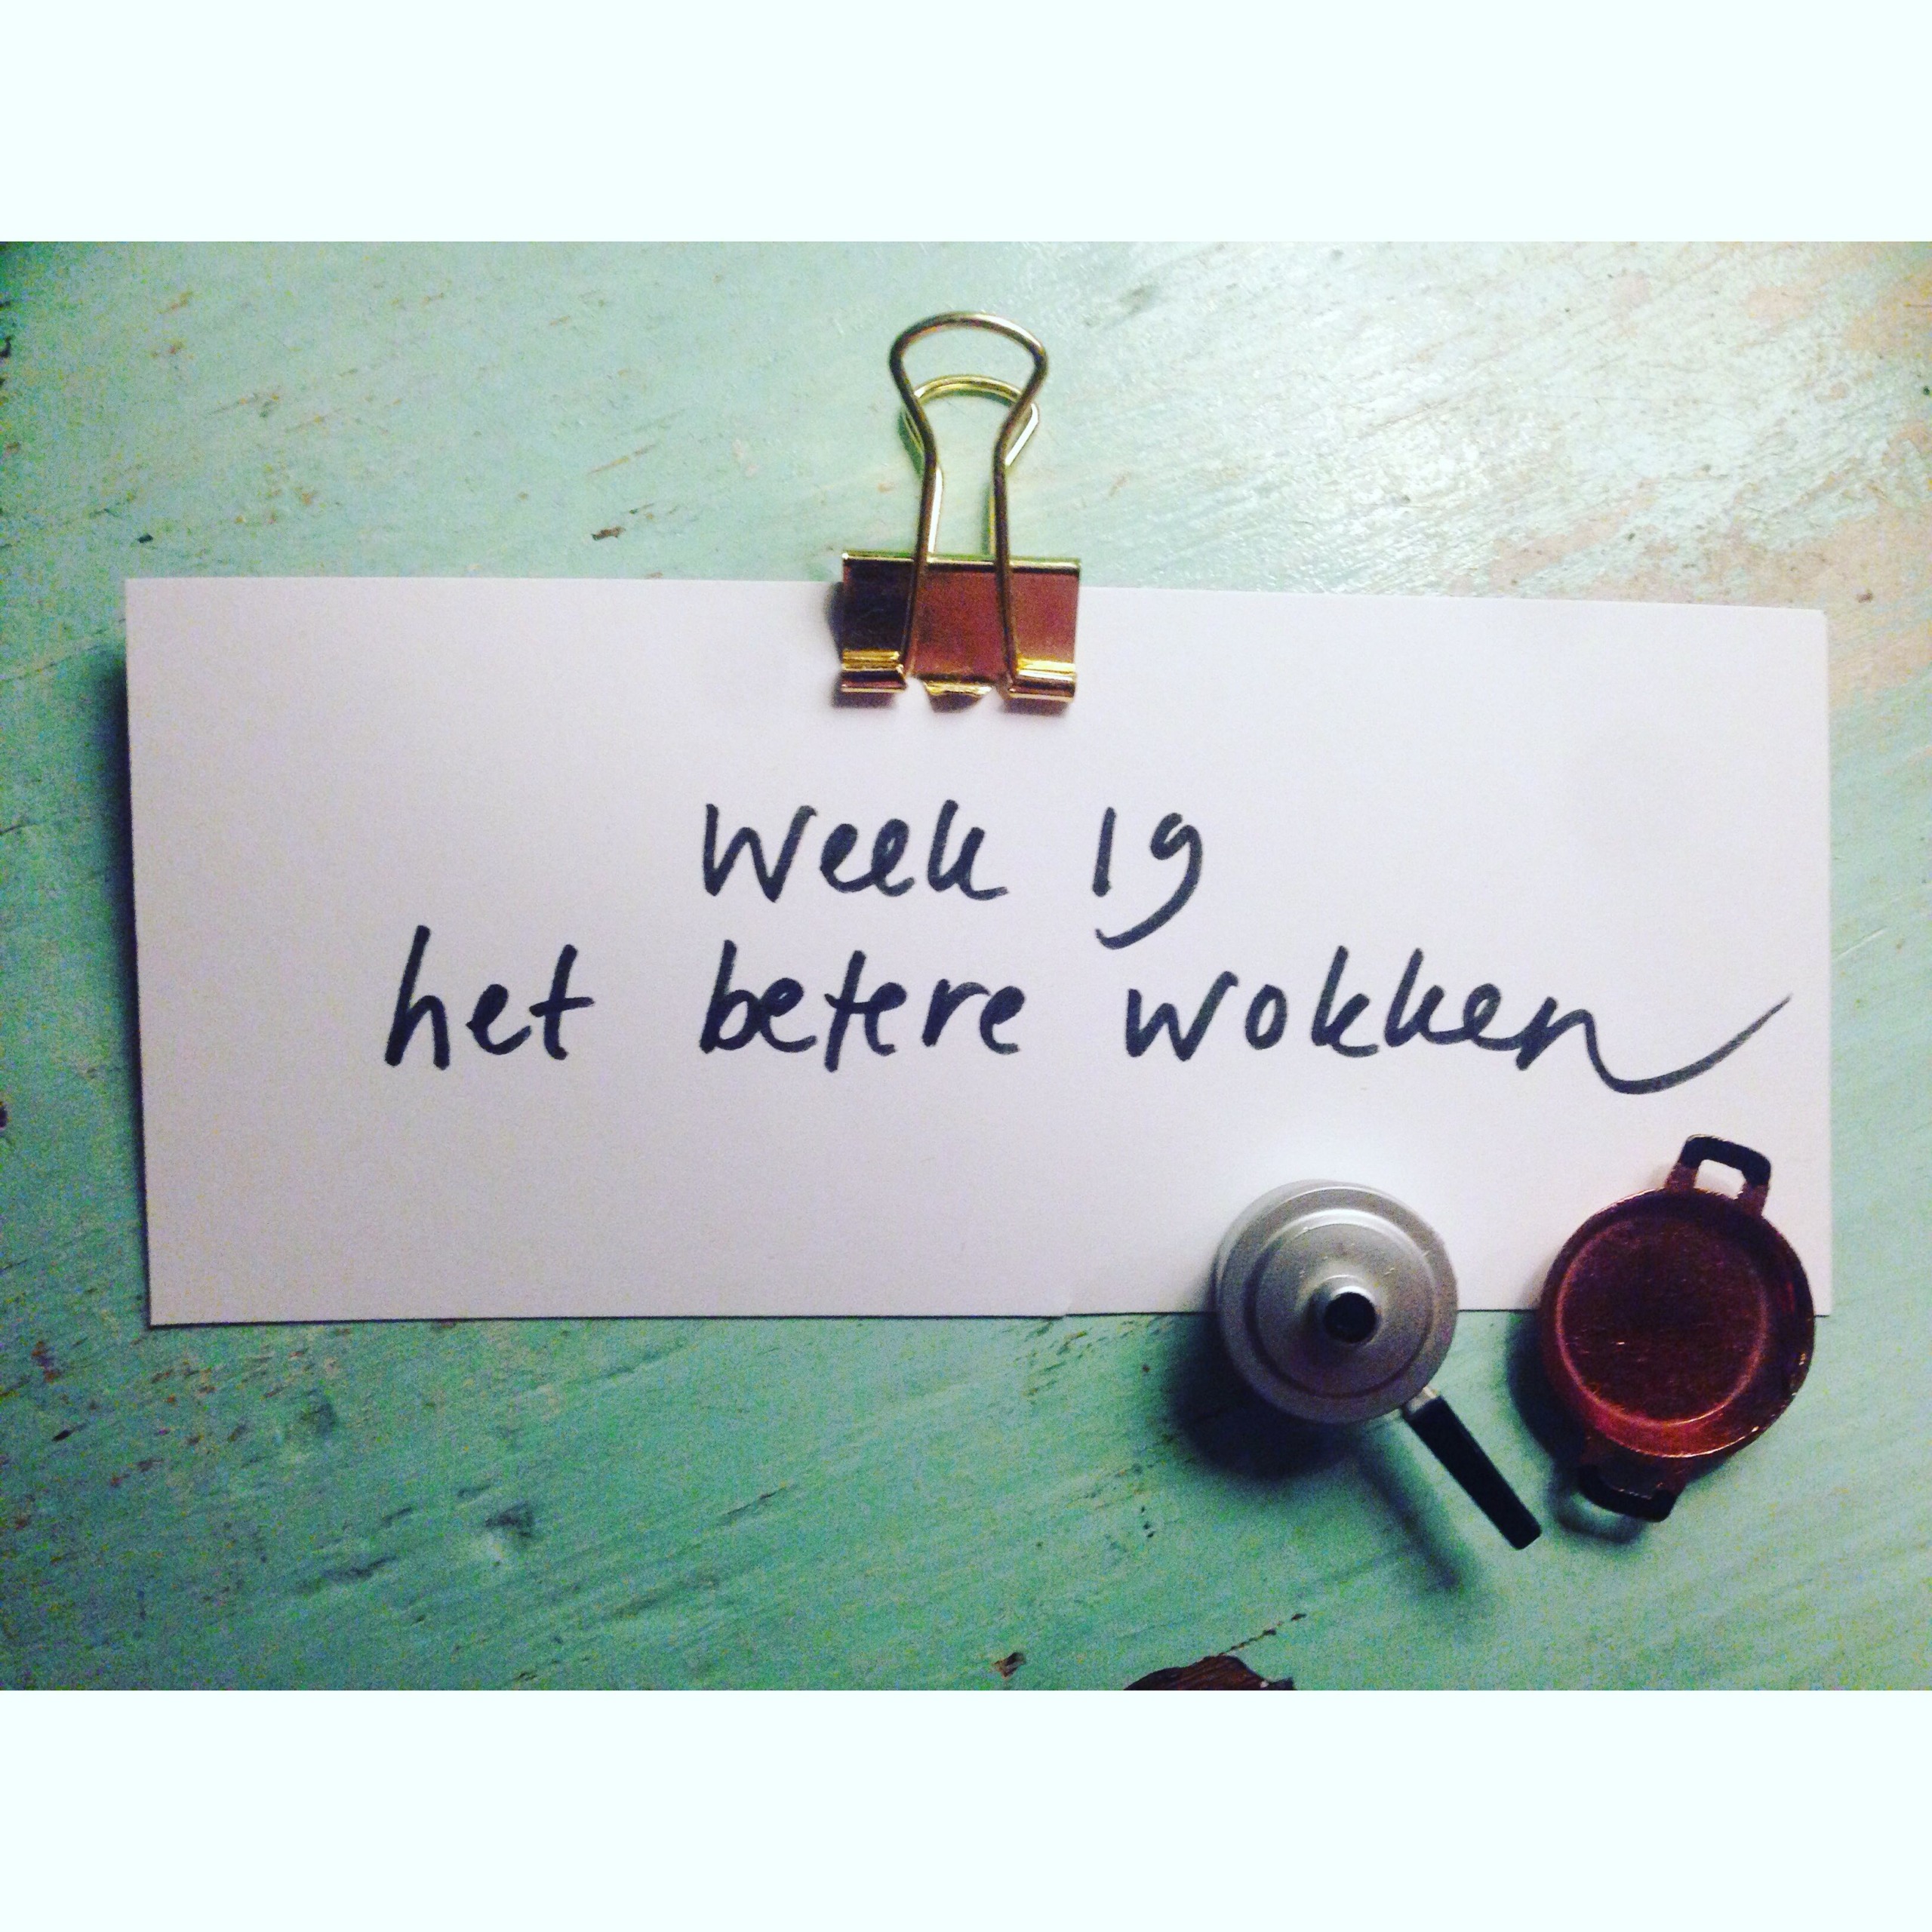 Week 19
het betere wokken